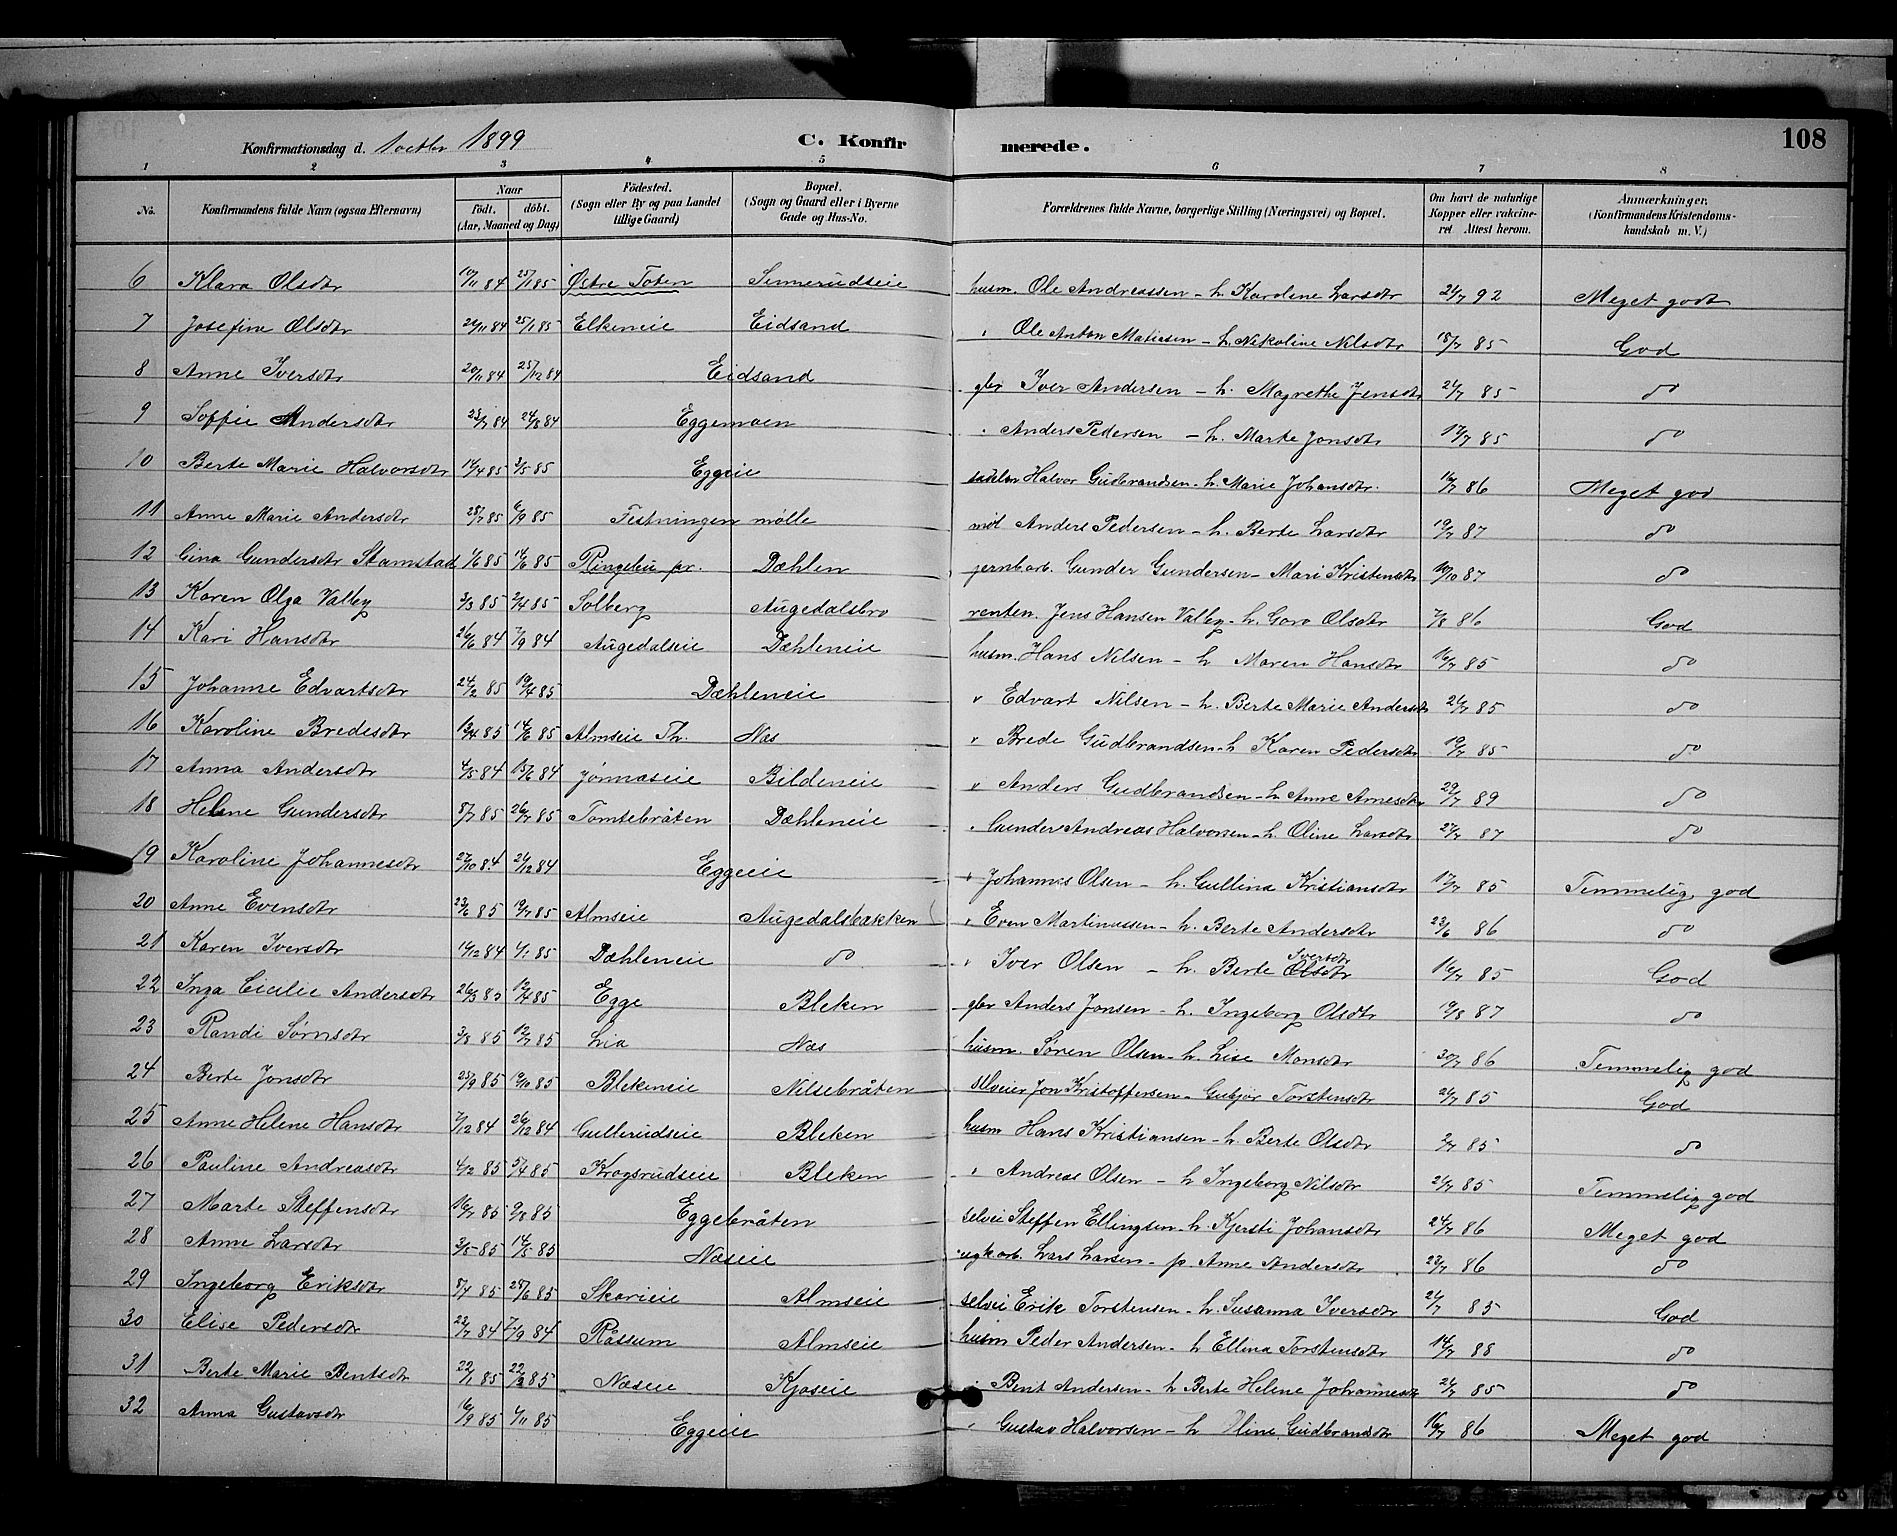 108
Konfirmationsdag d. 1 octbr 1899 C. Konfirmerede.
1 2 3 4 5 6 7 8
No. Konfirmandens fulde Navn (ogsaa Efternavn) Naar født. døbt. (Aar, Maaned og Dag) Fødested. (Sogn eller By og paa Landet tillige Gaard) Bopæl. (Sogn og Gaard eller i Byerne Gade og Hus-No. Forældrenes fulde Navne, borgerlige Stilling (Næringsvei) og Bopæl. Om havt de naturlige Kopper eller vakcineret Attest herom. Anmærkninger. (Konfirmandens Kristendomskundskab m. V.)
6 Klara Olsdtr 10/11 84 25/1 85 Østre Toten Sinnerudseie husm. Ole Andreassen - h. Karoline Larsdtr 24/7 92 Meget godt
7 Josefine Olsdtr 20/11 84 25/1 85 Elkeneie Eidsand " Ole Anton Matiesen - h. Nikoline Nilsdtr 18/7 85 God
8 Anne Iversdtr 20/11 84 25/12 84 Eidsand gbr Iver Andersen - h. Magrethe Jensdtr 24/7 85 do
9 Soffie Andersdtr 23/7 84 24/8 84 Eggemoen " Anders Pedersen - h. Marte Jonsdtr 17/7 85 do
10 Berte Marie Halvorsdtr 14/4 85 3/5 85 Eggeie Halvor Gudbrandsen - h. Marie Johansdtr. 16/7 86 Meget god
11 Anne Marie Andersdtr 28/7 85 6/9 85 Festningen mølle møl Anders Pedersen - h. Berte Larsdtr 19/7 87 do
12 Gina Gundersdtr Stamstad 1/6 85 14/6 85 Ringebu pr. Dæhlen jernbarb. Gunder Gundersen - Mari Kristensdtr 10/10 87 do
13 Karen Olga Valby 3/3 85 2/4 85 Solberg Augedalsbro renten. Jens Hansen Valby - h. Goro Olsdtr 7/8 86 God
14 Kari Hansdtr 26/6 84 7/9 84 Augedalseie Dæhleneie husm. Hans Nilsen - h Maren Hansdtr 16/7 85 do
15 Johanne Edvartsdtr 24/2 85 19/4 85 Dæhleneie " Edvart Nilsen - h. Berte Marie Andersdtr 24/7 85 do
16 Karoline Bredesdtr 13/4 85 14/6 85 Almseie Th. Næs " Brede Gudbrandsen - h Karen Pedersdtr 19/7 85 do
17 Anna Andersdtr 4/5 84 15/6 84 Jønnaseie Bildeneie " Anders Gudbrandsen - h Anne Arnesdtr 29/7 89 do
18 Helene Gundersdtr 8/7 85 26/7 85 Tomtebråten Dæhleneie " Gunder Andreas Halvorsen - h. Oline Larsdtr 27/7 87 do
19 Karoline Johannesdtr 27/10 84 26/12 84 Eggeeie " Johannes Olsen - h. Gullina Kristiansdtr 17/7 85 Temmelig god
20 Anne Evensdtr 23/6 85 19/7 85 Almseie Augedalsbakken " Even Martinussen - h. Berte Andersdtr 23/6 86 do
21 Karen Iversdtr 14/12 84 4/1 85 Dæhleneie do " Iver Olsen - h. Berte Olsdtr Iversdtr 16/7 85 God
22 Inga Cicilie Andersdtr 26/3 85 12/4 85 Egge Bleken gbr Anders Jonsen - h. Ingeborg Olsdtr 19/8 87 do
23 Randi Sørnsdtr 3/3 85 12/7 85 Lia Næs husm. Søren Olsen - h. Lise Monsdtr 30/7 86 Temmelig god
24 Berte Jonsdtr 25/9 85 9/10 85 Blekeneie Nilsebråten selveier Jon Kristoffersen - Gubjør Torstensdtr 24/7 85 God
25 Anne Helene Hansdtr 7/12 84 26/12 84 Gullerudseie Bleken husm Hans Kristiansen - h. Berte Olsdtr 2/7 85 do
26 Pauline Andreasdtr 4/2 85 5/4 85 Krogsrudseie Bleken " Andreas Olsen - h Ingeborg Nilsdtr 24/7 85 Temmelig god
27 Marte Steffensdtr 16/7 85 9/8 85 Eggebråten selvei Steffen Ellingsen - h. Kjersti Johansdtr 24/7 86 Meget god
28 Anne Larsdtr 3/5 85 14/5 85 Næseie Lars Larsen - p. Anne Andersdtr 23/7 86 do
29 Ingeborg Eriksdtr 8/4 85 28/6 85 Skarieie Almseie selvei Erik Torstensen - h. Susanna Iversdtr 24/7 85 God
30 Elise Pedersdtr 22/7 84 7/9 84 Råssum Almseie husm Peder Andersen - h Ellina Torstensdtr 14/7 88 do
31 Berte Marie Bentsdtr 22/1 85 22/3 85 Næseie Kjoseie " Bent Andersen - h Berte Helene Johannesdtr 24/7 85 do
32 Anna Gustavsdtr 16/9 85 1/11 85 Eggeie " Gustav Halvorsen - h Oline Gudbrandsdtr 16/7 86 Meget god